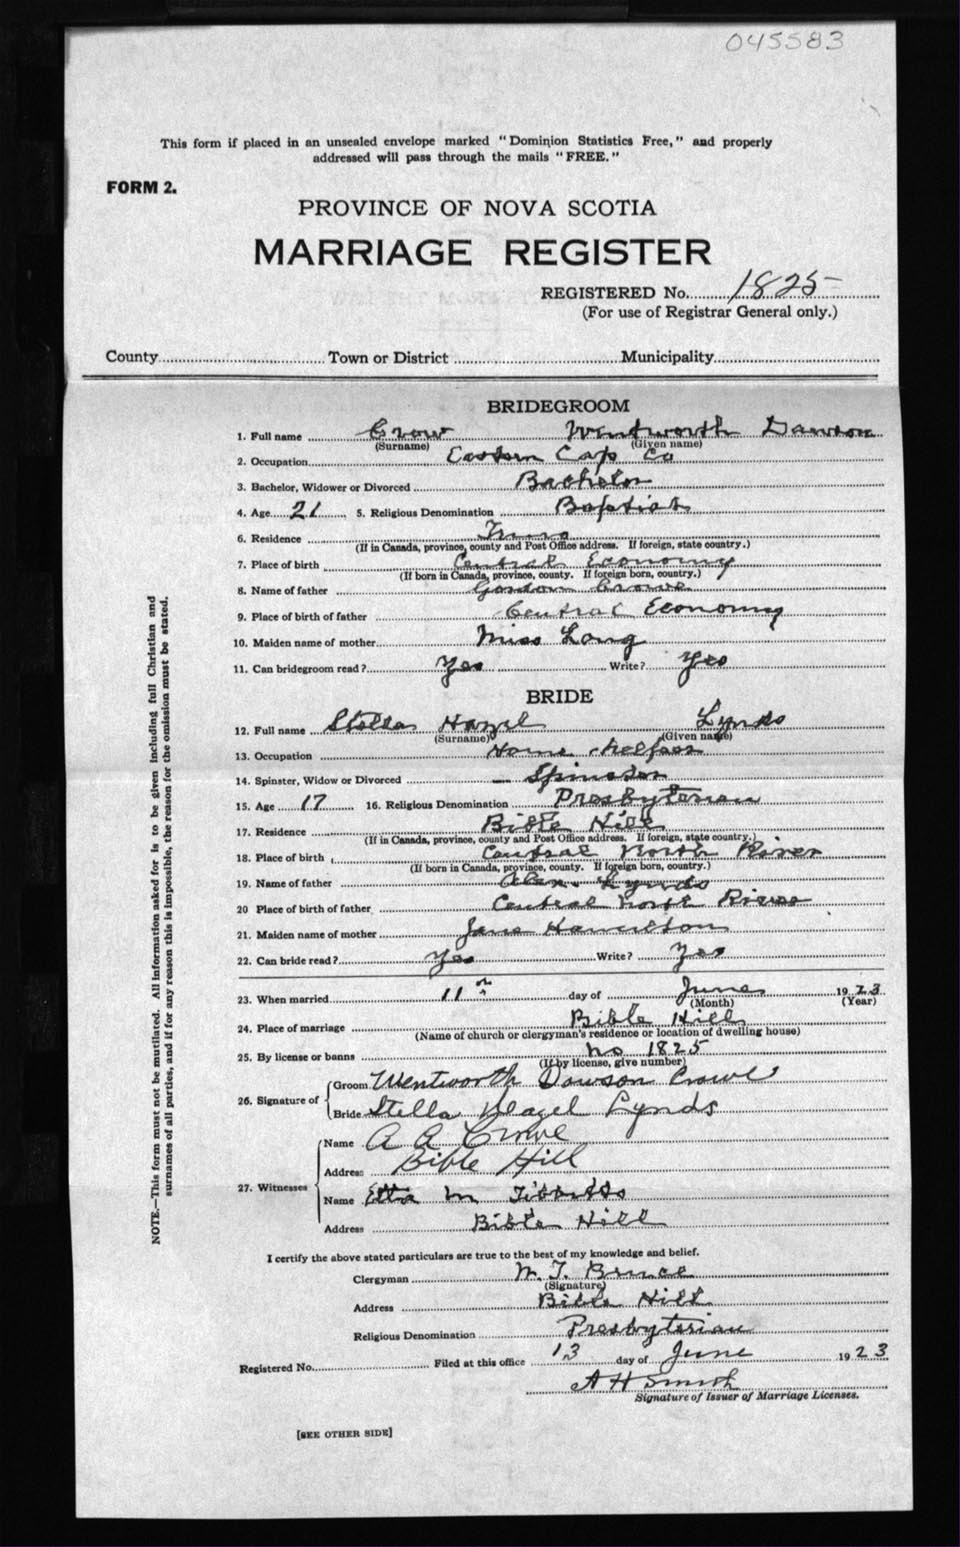 045583
This form if placed in an unsealed envelope marked "Dominion Statistics Free," and properly
addressed will pass through the mails "FREE."
FORM 2.
PROVINCE OF NOVA SCOTIA
MARRIAGE REGISTER
REGISTERED No. 1825
(For use of Registrar General only.)
County Town or District Municipality
BRIDEGROOM
1. Full name Crow Wentworth Dawson
(Surname) (Given name)
2. Occupation Eastern Cap Co
3. Bachelor, Widower or Divorced Bachelor
4. Age 21 5. Religious Denomination Baptist
6. Residence Truro
(If in Canada, province, county and Post Office address. If foreign, state country.)
7. Place of birth Central Economy
(If born in Canada, province, county. If foreign born, country.)
8. Name of father Gordon Crowe
9. Place of birth of father Central Economy
10. Maiden name of mother Miss Long
11. Can bridegroom read? Yes Write? Yes
BRIDE
12. Full name Stella Hazel Lynds
(Surname) (Given name)
13. Occupation Home helper
14. Spinster, Widow or Divorced — Spinster
15. Age 17 16. Religious Denomination Presbyterian
17. Residence Bible Hill
(If in Canada, province, county and Post Office address. If foreign, state country.)
18. Place of birth Central North River
(If born in Canada, province, county. If foreign born, country.)
19. Name of father Lynds
20 Place of birth of father Central North River
21. Maiden name of mother Jane Hamilton
22. Can bride read? Yes Write? Yes
23. When married 11th day of June 1923
(Month) (Year)
24. Place of marriage Bible Hill
(Name of church or clergyman's residence or location of dwelling house)
25. By license or banns no 1825
(If by license, give number)
26. Signature of
Groom Wentworth Dawson Crowe
Bride Stella Hazel Lynds
27. Witnesses
Name A A Crowe
Address Bible Hill
Name Etta M Tibbitts
Address Bible Hill
I certify the above stated particulars are true to the best of my knowledge and belief.
Clergyman M. T. Bruce
(Signature)
Address Bible Hill
Religious Denomination Presbyterian
Registered No. Filed at this office 13 day of June 1923
A H Smith
Signature of Issuer of Marriage Licenses.
[SEE OTHER SIDE]
NOTE.—This form must not be mutilated. All information asked for is to be given including full Christian and
surnames of all parties, and if for any reason this is impossible, the reason for the omission must be stated.